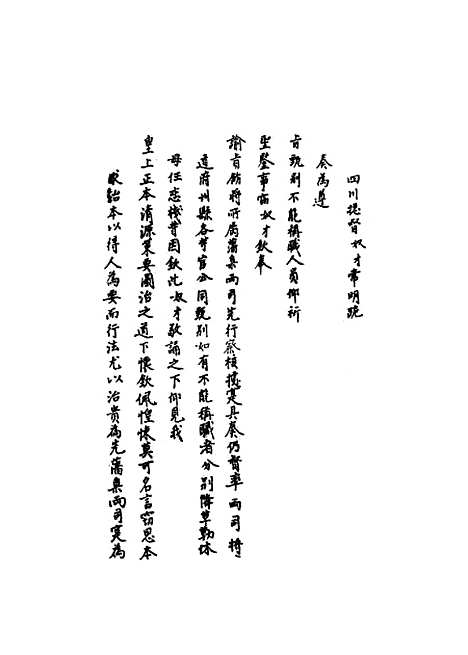 四川提督奴才常明跪
奏為遵
旨甄別不能稱職人員仰祈
聖鑒事竊奴才欽奉
諭旨飭將所屬藩臬兩司先行察核據實具奏仍督率兩司將
道府州縣各等官公同甄別如有不能稱職者分別降革勒休
毋任戀棧等因欽此奴才敬誦之下仰見我
皇上正本清源策要圖治之道下懷欽佩惶悚莫可名言竊思本
求飭本以得人為要而行法尤以治貴為先藩臬兩司寔為